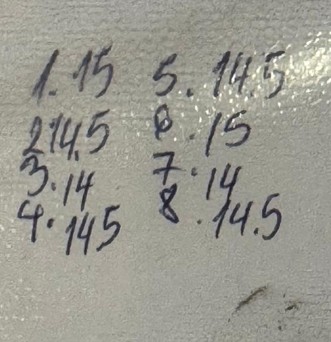 1. 15
2 14.5
3. 14
4. 14.5
5. 14.5
6. 15
7. 14
8. 14.5